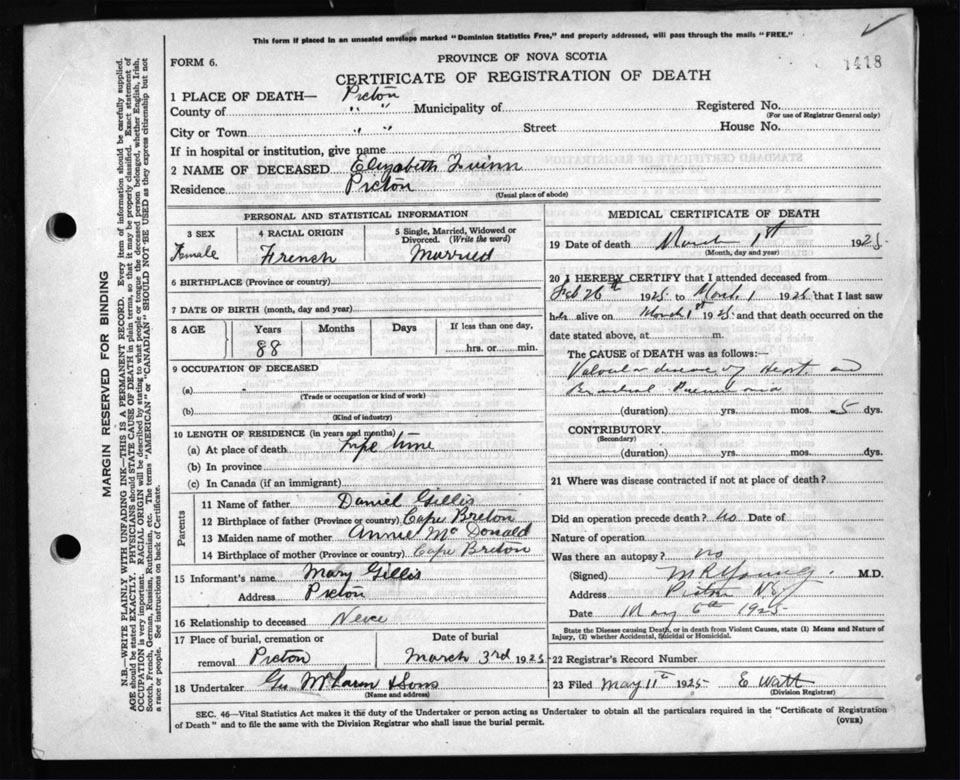 This form if placed in an unsealed envelope marked "Dominion Statistics Free," and properly addressed, will pass through the mails "FREE."
FORM 6.
PROVINCE OF NOVA SCOTIA
1418
CERTIFICATE OF REGISTRATION OF DEATH
1 PLACE OF DEATH— Pictou
County of " " Municipality of Registered No.
(For use of Registrar General only)
City or Town " " Street House No.
If in hospital or institution, give name
2 NAME OF DECEASED Elizabeth Quinn
Residence Pictou
(Usual place of abode)
PERSONAL AND STATISTICAL INFORMATION
3 SEX 4 RACIAL ORIGIN 5 Single, Married, Widowed or Divorced. (Write the word)
Female French Married
6 BIRTHPLACE (Province or country)
7 DATE OF BIRTH (month, day and year)
8 AGE Years Months Days If less than one day,
88 hrs. or min.
9 OCCUPATION OF DECEASED
(a)
(Trade or occupation or kind of work)
(b)
(Kind of industry)
10 LENGTH OF RESIDENCE (in years and months)
(a) At place of death Life time
(b) In province
(c) In Canada (if an immigrant)
Parents
11 Name of father Daniel Gillis
12 Birthplace of father (Province or country) Cape Breton
13 Maiden name of mother Annie McDonald
14 Birthplace of mother (Province or country) Cape Breton
15 Informant's name Mary Gillis
Address Pictou
16 Relationship to deceased Neice
17 Place of burial, cremation or Date of burial
removal Pictou March 3rd 1925
18 Undertaker Geo McLaren & Sons
(Name and address)
MEDICAL CERTIFICATE OF DEATH
19 Date of death March 1st 1925
(Month, day and year)
20 I HEREBY CERTIFY that I attended deceased from
Feb 26th 1925 to March 1 1925 that I last saw
her alive on March 1st 1925 and that death occurred on the
date stated above, at m.
The CAUSE of DEATH was as follows:—
Valvular disease of Heart and
Bronchial Pneumonia
(duration) yrs. mos. 5 dys.
CONTRIBUTORY
(Secondary)
(duration) yrs. mos. dys.
21 Where was disease contracted if not at place of death?
Did an operation precede death? no Date of
Nature of operation
Was there an autopsy? no
(Signed) M R Young M.D.
Address Pictou N.S.
Date May 6th 1925
State the Disease causing Death, or in death from Violent Causes, state (1) Means and Nature of
Injury, (2) whether Accidental, Suicidal or Homicidal.
22 Registrar's Record Number
23 Filed May 11th 1925 E Watt
(Division Registrar)
SEC. 46—Vital Statistics Act makes it the duty of the Undertaker or person acting as Undertaker to obtain all the particulars required in the "Certificate of Registration
of Death" and to file the same with the Division Registrar who shall issue the burial permit.
(OVER)
MARGIN RESERVED FOR BINDING
N.B.—WRITE PLAINLY WITH UNFADING INK—THIS IS A PERMANENT RECORD. Every item of information should be carefully supplied.
AGE should be stated EXACTLY. PHYSICIANS should STATE CAUSE OF DEATH in plain terms, so that it may be properly classified. Exact statement of
OCCUPATION is very important. RACIAL ORIGIN will be described by stating to what people or tongue the deceased person belonged, whether English, Irish,
Scotch, French, German, Russian, Ruthenian, etc. The terms "AMERICAN" or "CANADIAN" SHOULD NOT BE USED as they express citizenship but not
a race or people. See instructions on back of Certificate.